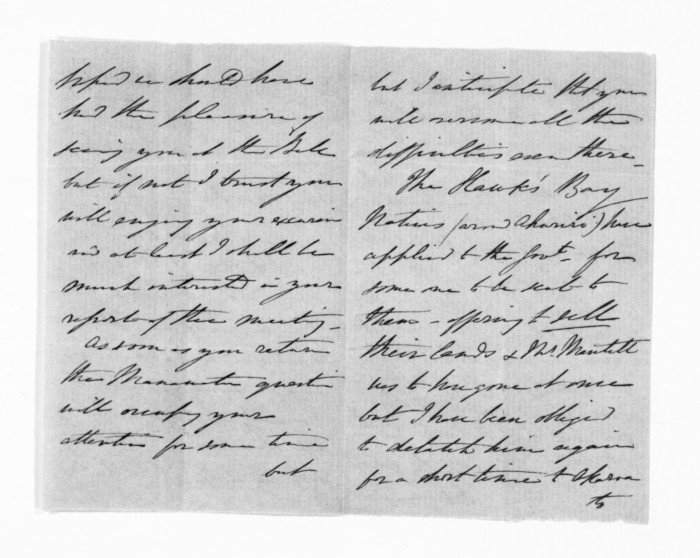 hoped we should have
had the pleasure of
seeing you at the
but if not I trust you
will enjoy your excursion
and at least I shall be
much interested in your
reports of the meeting –
As soon as you return
the Manawatu question
will occupy your
attention for some time
but
but I anticipate that you
will overcome all the
difficulties even there –
The Hawk's Bay
Natives (around Ahuriri) have
applied to the Govt. for
some one to be sent to
them – offering to sell
their lands & Mr. Mantell
was to have gone at once
but I have been obliged
to detatch him again
for a short time to Akaroa
to